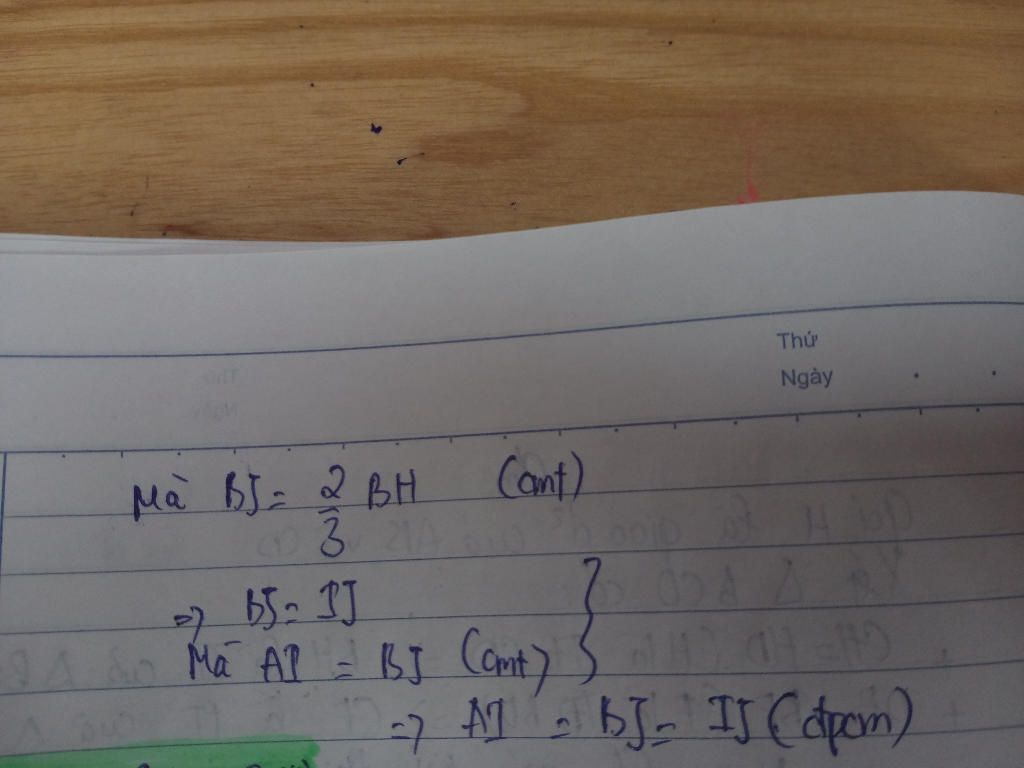 Thứ
Ngày
Mà BJ = 2/3 BH (cmt)
=> BJ = IJ
Mà AI = BJ (cmt)
=> AI = BJ = IJ (đpcm)